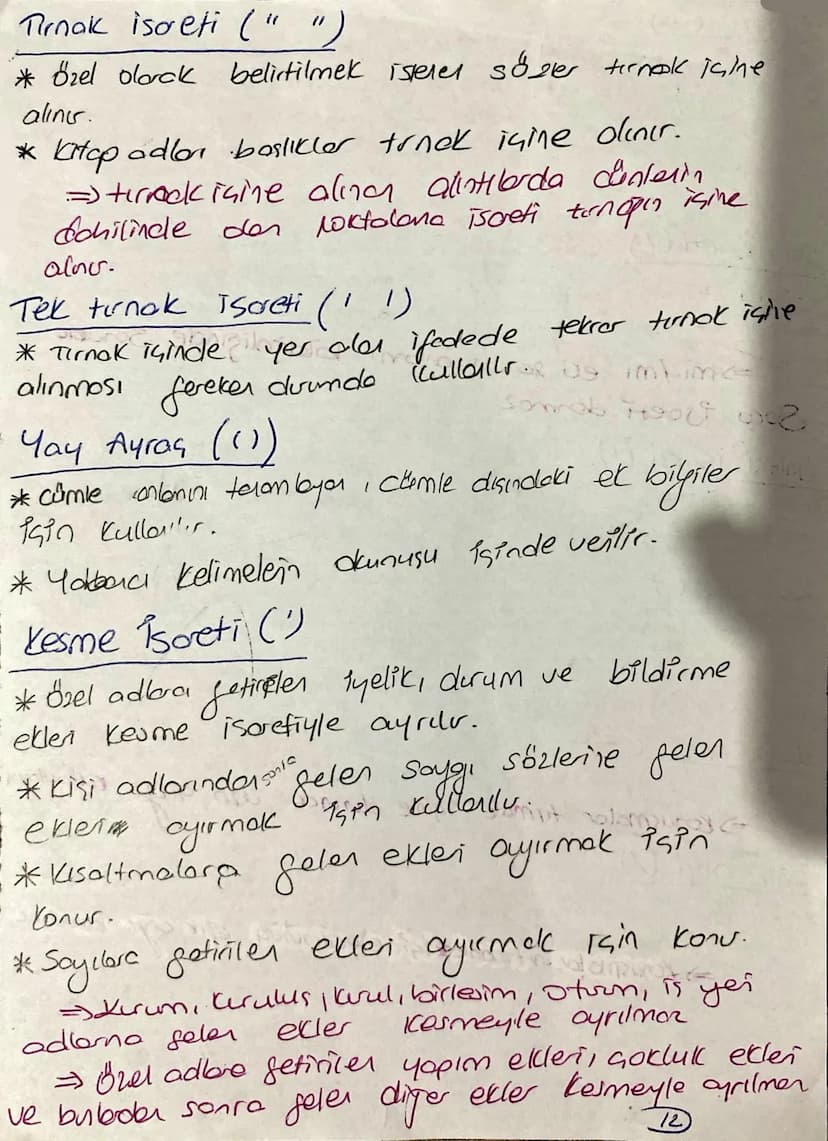 Tırnak işareti (" ")
* Özel olarak belirtilmek istenen sözler tırnak içine
alınır.
* Kitap adları başlıklar tırnak içine alınır.
⇒ tırnak içine alınan alıntılarda cümlenin
dahilinde olan noktalama işareti tırnağın içine
alınır.
Tek tırnak işareti (' ')
* Tırnak içinde yer alan ifadede tekrar tırnak içine
alınması gereken durumda kullanılır.
Yay Ayraç ( )
* Cümle anlamını tamamlayan, cümle dışındaki ek bilgiler
için kullanılır.
* Yabancı kelimelein okunuşu içinde verilir.
Kesme İşareti (')
* Özel adlara getirilen iyelik, durum ve bildirme
ekleri kesme işaretiyle ayrılır.
* Kişi adlarından sonra gelen saygı sözlerine gelen
ekleri ayırmak için kullanılır.
* Kısaltmalara gelen ekleri ayırmak için
konur.
* Sayılara getirilen ekleri ayırmak için konur.
⇒ Kurum, kuruluş, kurul, birleşim, oturum, iş yeri
adlarına gelen ekler kesmeyle ayrılmaz
⇒ Özel adlara getirilen yapım ekleri, çokluk ekleri
ve bunlardan sonra gelen diğer ekler kesmeyle ayrılmaz
12